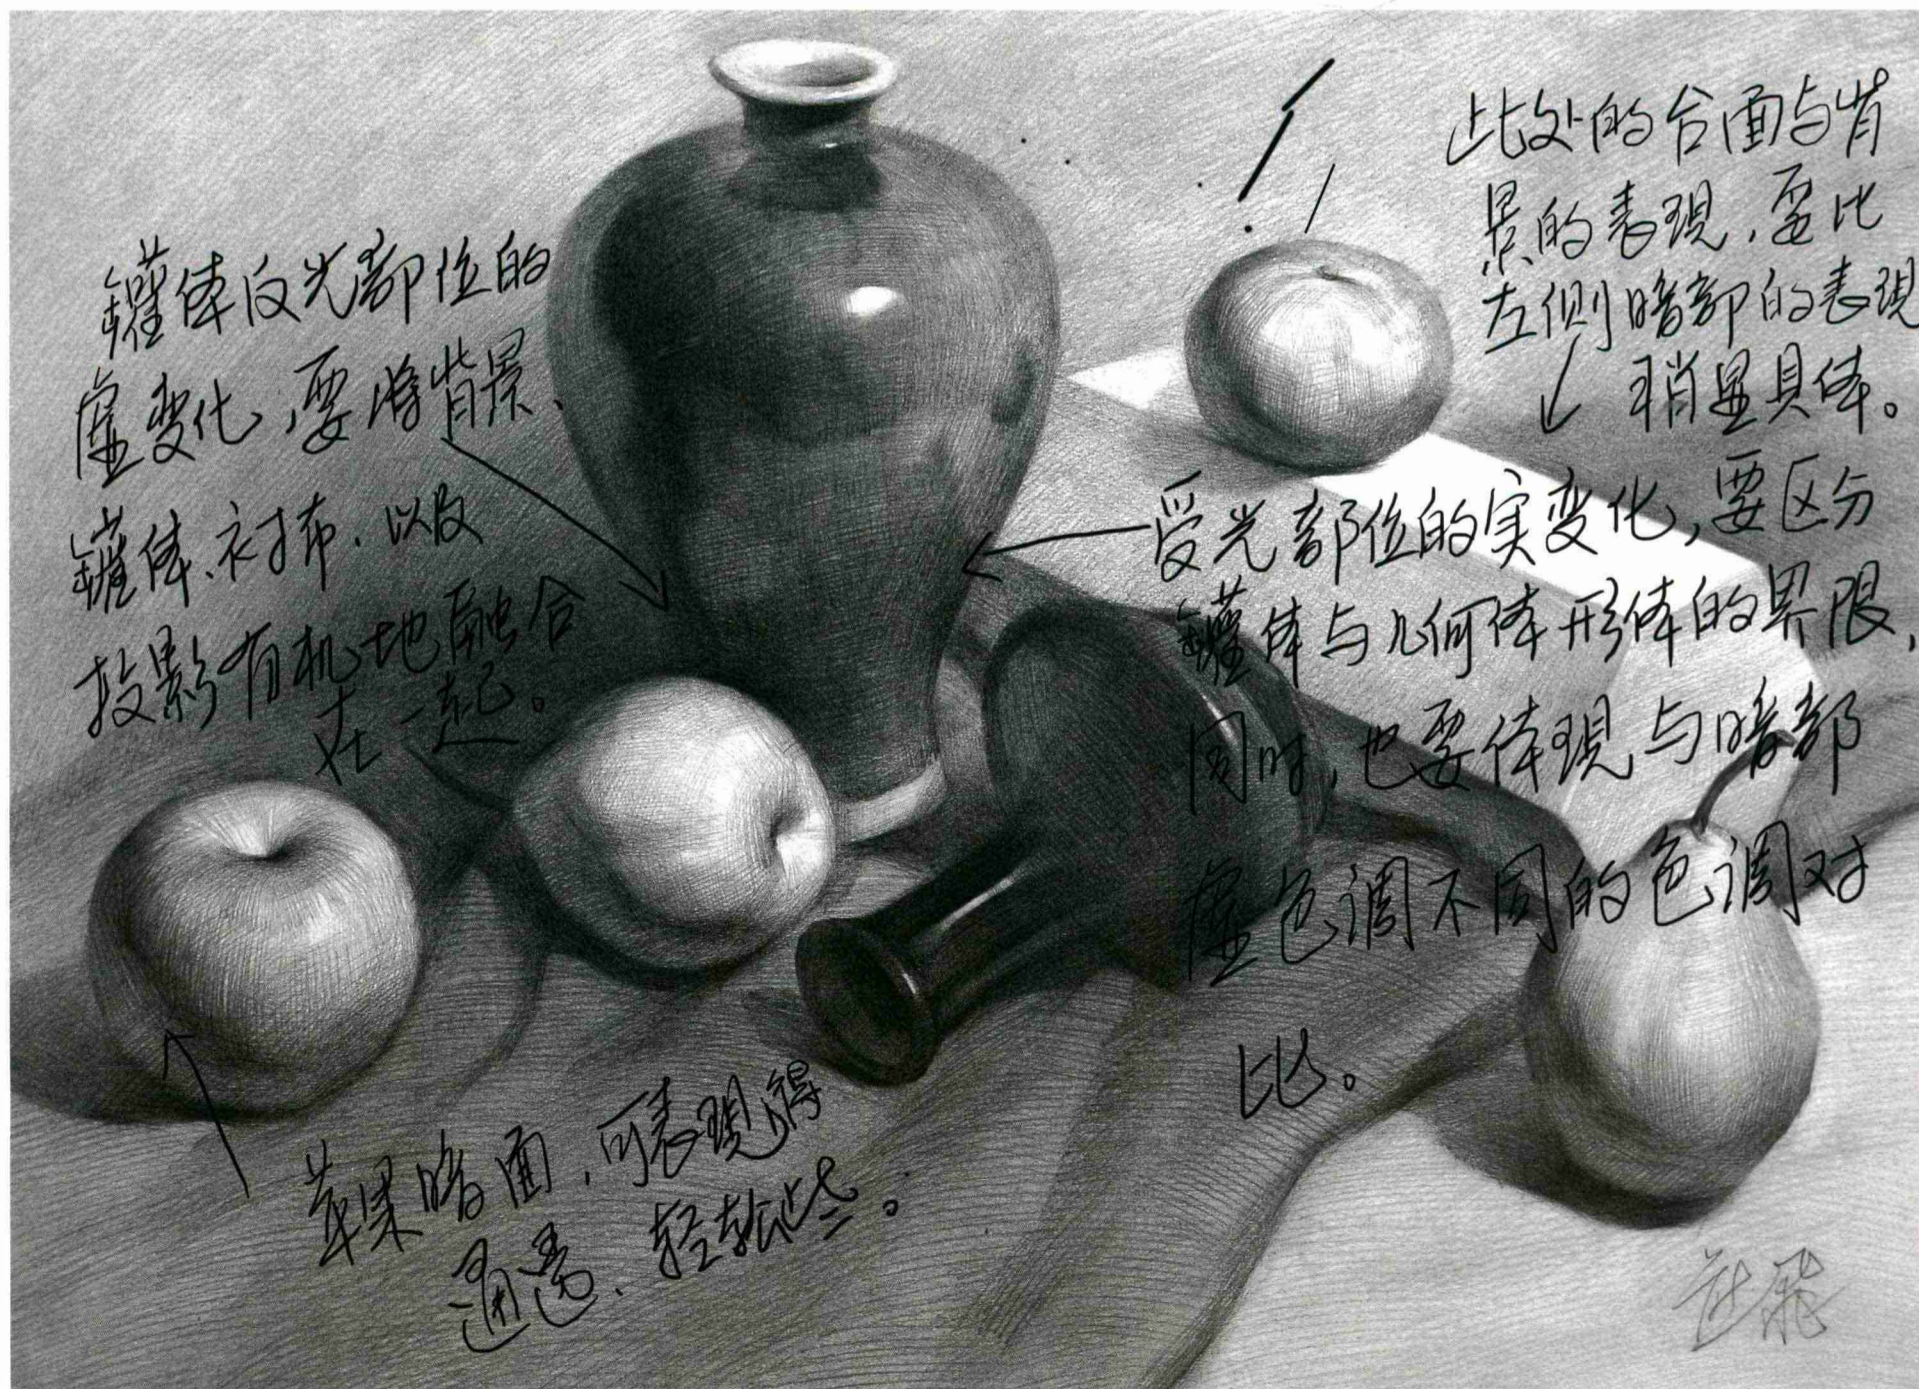 罐体反光部位的
虚变化,要将背景、
罐体、衬布、以及
投影有机地融合
在一起。
此处的台面与背
景的表现,要比
左侧暗部的表现
稍显具体。
受光部位的实变化,要区分
罐体与几何体形体的界限,
同时,也要体现与暗部
虚色调不同的色调对
比。
苹果暗面,可表现得
通透、轻松些。